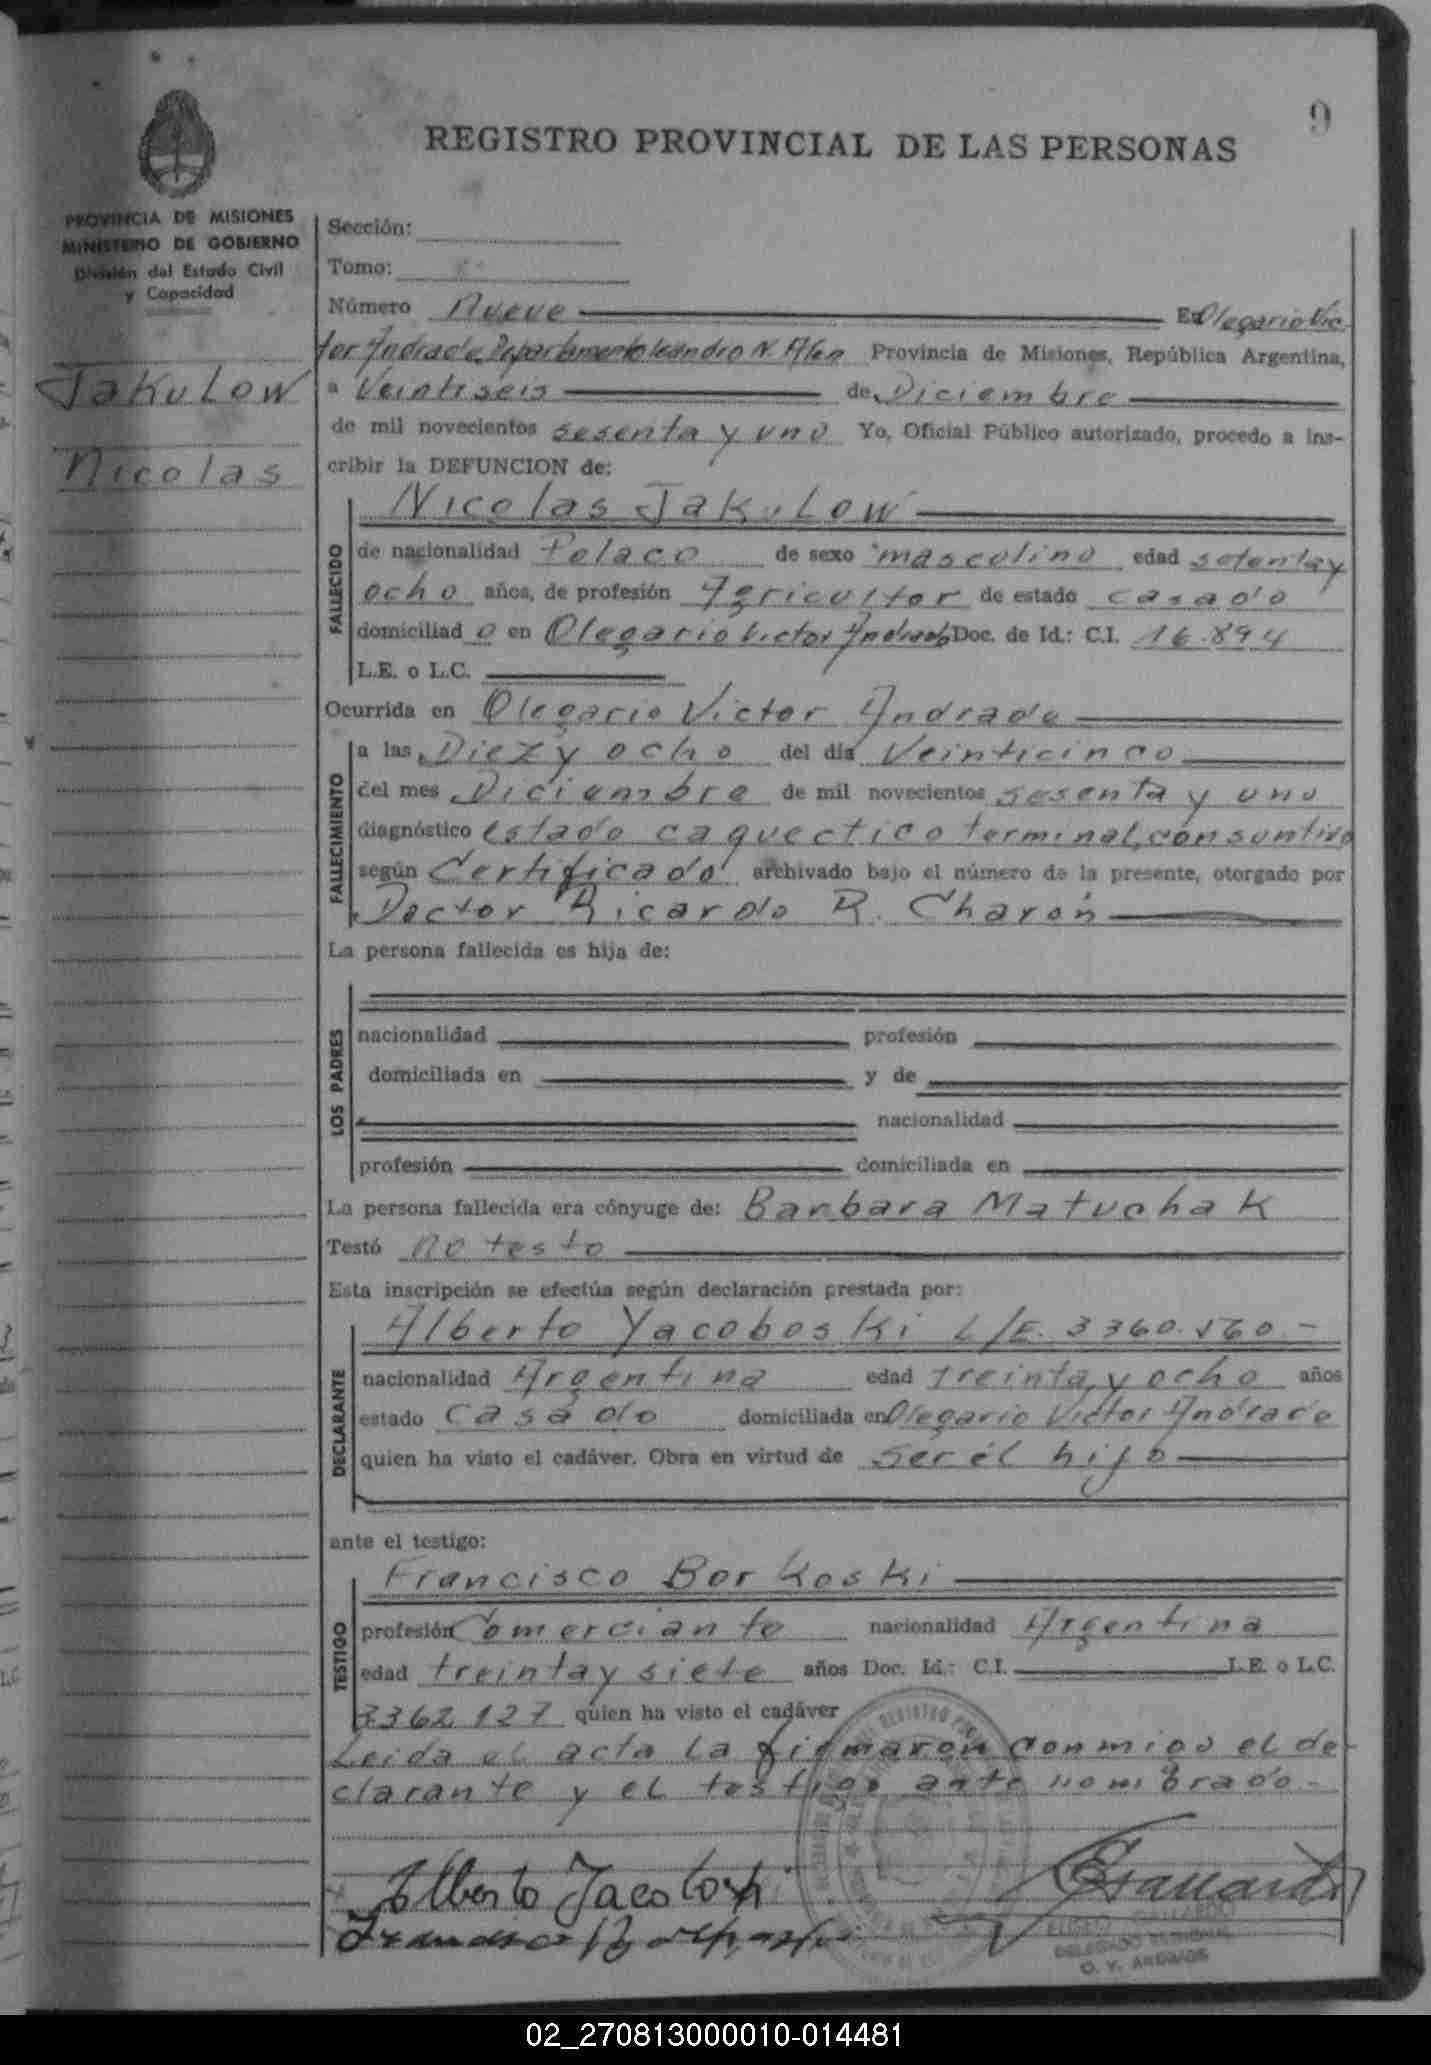 9
REGISTRO PROVINCIAL DE LAS PERSONAS
PROVINCIA DE MISIONES
MINISTERIO DE GOBIERNO
División del Estado Civil
y Capacidad
Jakulow
Nicolas
Sección:
Tomo:
Número Nueve En Olegario Vic
tor Andrade, Departamento Leandro N. Alen Provincia de Misiones, República Argentina,
a Veintiseis de Diciembre
de mil novecientos sesenta y uno Yo, Oficial Público autorizado, procedo a ins-
cribir la DEFUNCION de:
FALLECIDO
Nicolas Jakulow
de nacionalidad Polaco de sexo masculino edad setenta y
ocho años, de profesión Agricultor de estado casado
domiciliad o en Olegario Victor Andrade Doc. de Id.: C.I. 16.894
L.E. o L.C.
Ocurrida en Olegario Victor Andrade
FALLECIMIENTO
a las Diez y ocho del día Veinticinco
del mes Diciembre de mil novecientos sesenta y uno
diagnóstico estado caquectico terminal, consuntivo
según Certificado archivado bajo el número de la presente, otorgado por
Doctor Ricardo R. Charón
La persona fallecida es hija de:
LOS PADRES
nacionalidad profesión
domiciliada en y de
nacionalidad
profesión domiciliada en
La persona fallecida era cónyuge de: Barbara Matuchak
Testó no testo
Esta inscripción se efectúa según declaración prestada por:
DECLARANTE
Alberto Yacoboski L/E. 3360.560.-
nacionalidad Argentina edad treinta y ocho años
estado casado domiciliada en Olegario Victor Andrade
quien ha visto el cadáver. Obra en virtud de ser él hijo
ante el testigo:
TESTIGO
Francisco Borkoski
profesión Comerciante nacionalidad Argentina
edad treinta y siete años Doc. Id.: C.I. L.E. o L.C.
3362127 quien ha visto el cadáver
Leida el acta la firmaron conmigo el de-
clarante y el testigo ante nombrado.-
Alberto Jacoboski
Francisco
ELISEO GALLARDO
DELEGADO
O. V. ANDRADE
02_270813000010-014481